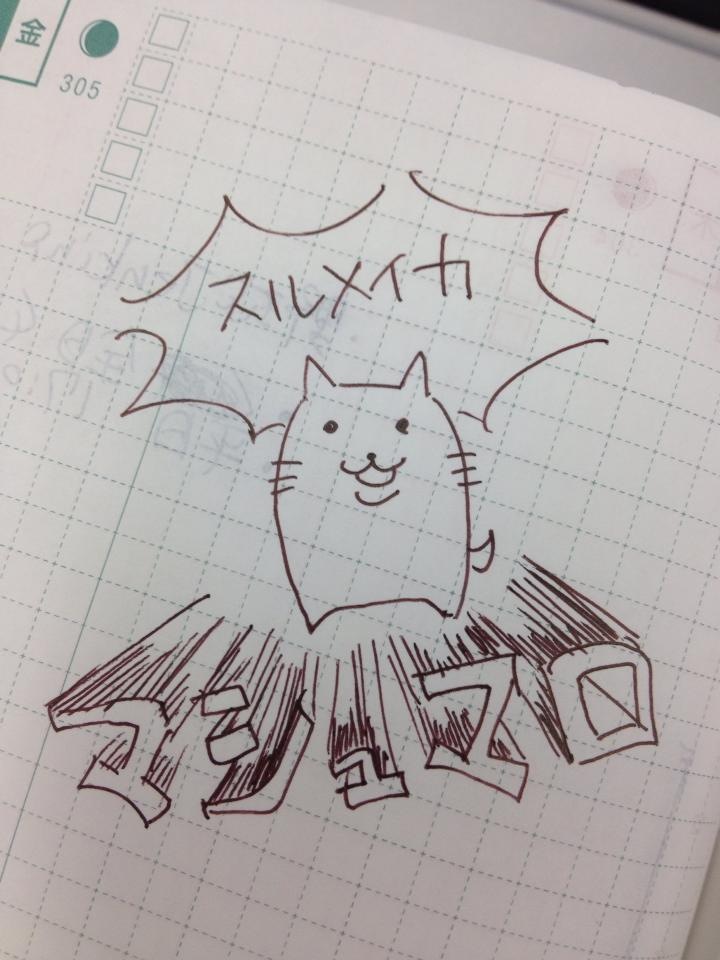 金
305
スルメイカ
マシュスロ